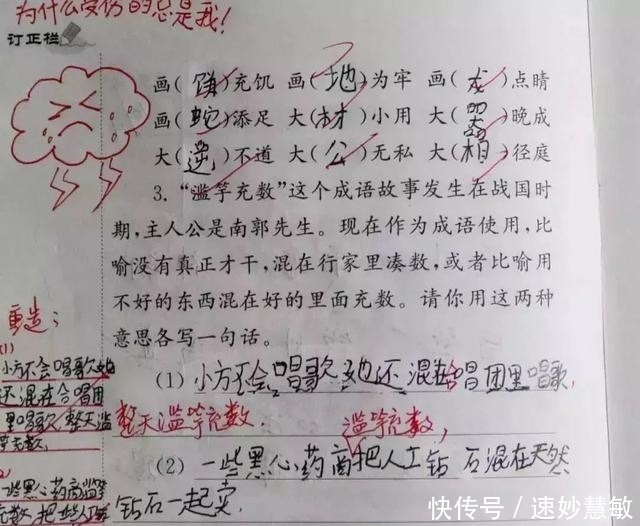 为什么受伤的总是我!
订正栏
画(饼)充饥 画(地)为牢 画(龙)点睛
画(蛇)添足 大(材)小用 大(器)晚成
大(逆)不道 大(公)无私 大(相)径庭
3. “滥竽充数”这个成语故事发生在战国时
期,主人公是南郭先生。现在作为成语使用,比
喻没有真正才干,混在行家里凑数,或者比喻用
不好的东西混在好的里面充数。请你用这两种
意思各写一句话。
(1) 小方不会唱歌 她还混在合唱团里唱歌,
整天滥竽充数. 滥竽充数,
(2) 一些黑心药商把人工钻石混在天然
钻石一起卖.
重造:
(1)
小方不会唱歌她
还混在合唱团
里唱歌,整天滥
竽充数.
一些黑心药商滥竽
充数,把
快传号 / 速妙慧敏